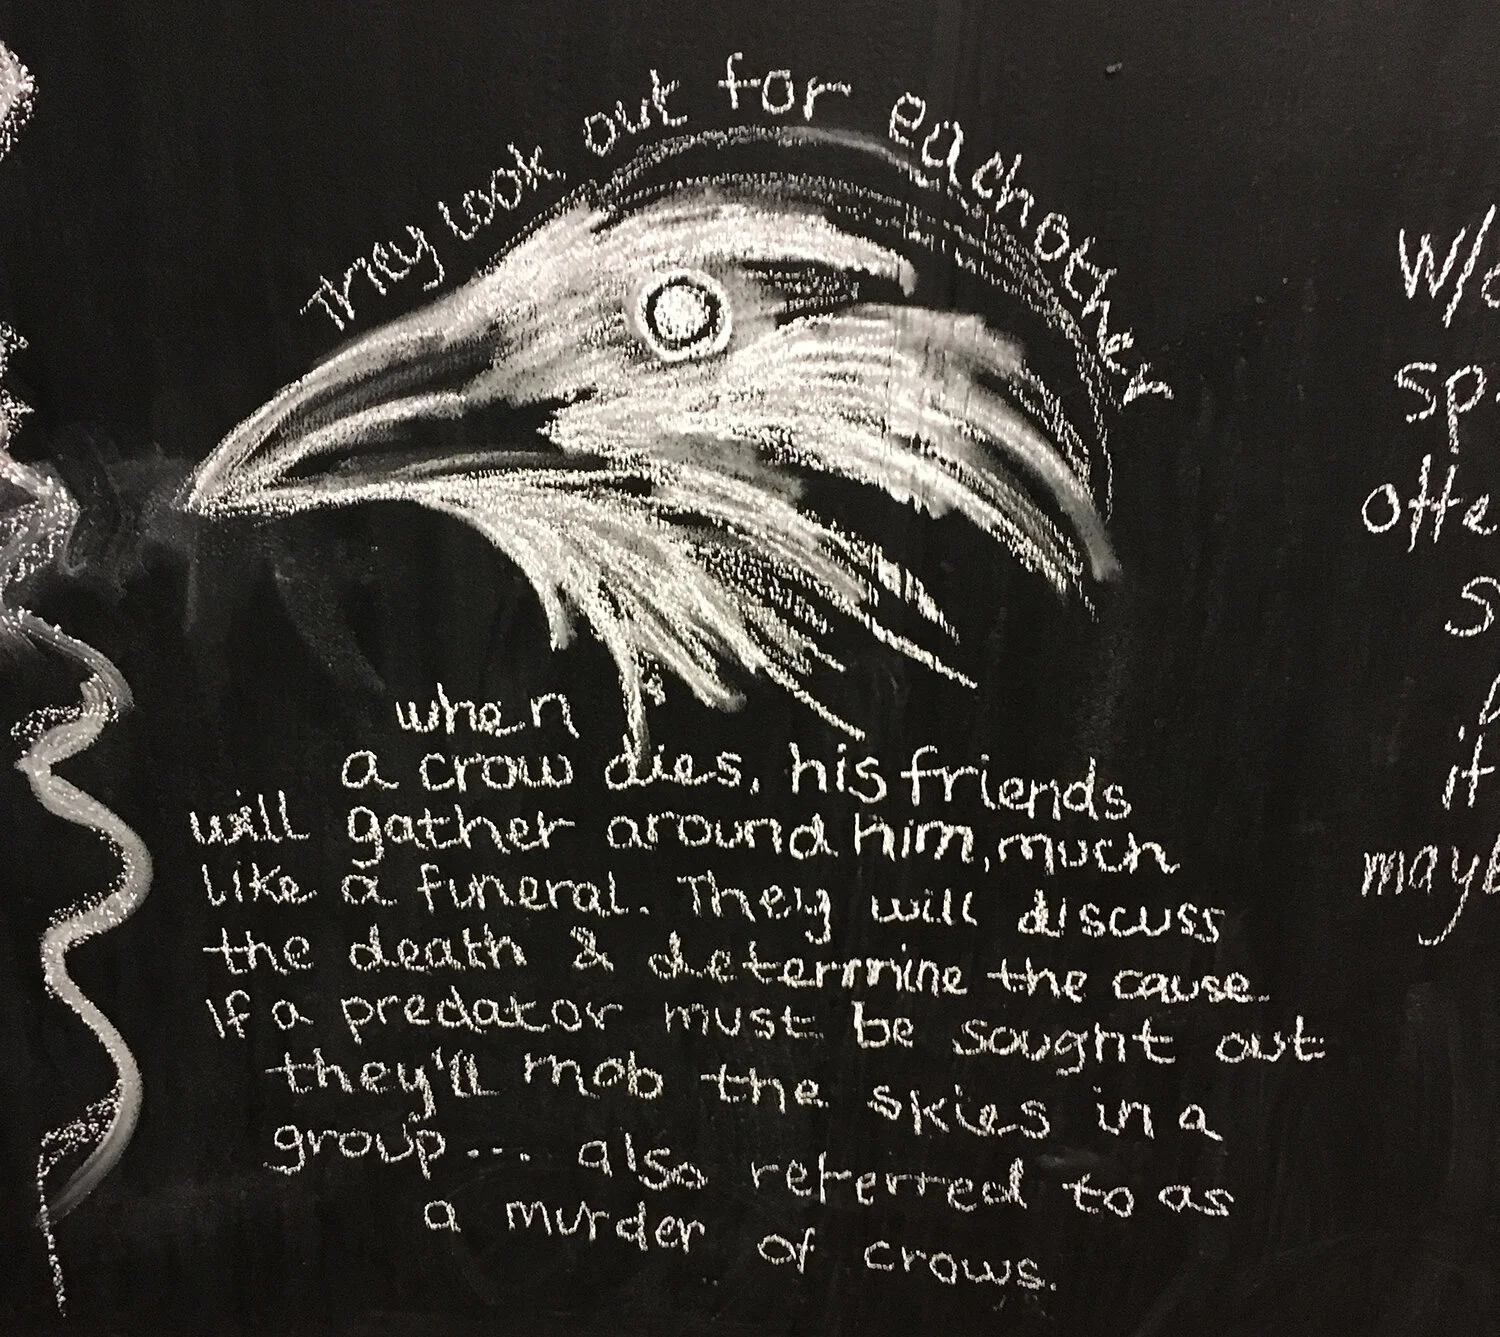 They look out for eachother
when
a crow dies, his friends
will gather around him, much
like a funeral. They will discuss
the death & determine the cause.
If a predator must be sought out
they'll mob the skies in a
group... also referred to as
a murder of crows.
it